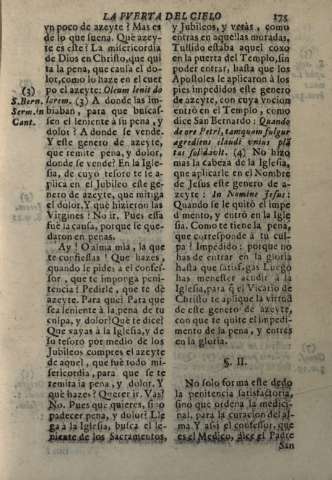 LA PVERTA DEL CIELO
175
vn poco de azeyte? Mas es
de lo que suena. Què azey-
te es este? La misericordia
de Dios en Christo, que qui
ta la pena, que causa el do-
lor, como lo haze en el cuer
po el azeyte: Oleum lenit do
(3)
S. Bern.
Serm. in
Cant.
lorem. (3) A donde las im-
biaban, para que buscas-
sen el leniente à su pena, y
dolor? A donde se vende.
Y este genero de azeyte,
que remite pena, y dolor,
donde se vende? En la Igle-
sia, de cuyo tesoro se le a-
plica en el Jubileo este ge-
nero de azeyte, que mitiga
el dolor. Y què hizieron las
Virgines? No ir. Pues essa
fuè la causa, porque se que-
daron en penas.
Ay! O alma mia, la que
te confiessas! Que hazes,
quando le pides al confes-
sor, que te imponga peni-
tencia? Pedirle, que te dè
azeyte. Para què? Para que
sea leniente à la pena de tu
culpa, y dolor? Què te dize?
Que vayas à la Iglesia, y de
su tesoro por medio de los
Jubileos compres el azeyte
de aquel, que fuè todo mi-
sericordia, para que se te
remita la pena, y dolor. Y
què hazes? Querer ir. Vas?
No. Pues què quieres, sino
padecer pena, y dolor? Lle-
ga à la Iglesia, busca el le-
niente de los Sacramentos,
y Jubileos, y veràs, como
entras en aquellas moradas.
Tullido estaba aquel coxo
en la puerta del Templo, sin
poder entrar, hasta que los
Apostoles le aplicaron à los
pies impedidos este genero
de azeyte, con cuya vncion
entrò en el Templo, como
dice San Bernardo: Quando
de ore Petri, tamquam fulgur
egrediens claudi vnius plã
tas solidavit. (4) No hizo
mas la cabeza de la Iglesia,
que aplicarle en el Nombre
de Jesus este genero de a-
zeyte: In Nomine Jesu:
Quando se le quitò el impe
dimento, y entrò en la Igle
sia. Como te tiene la pena,
que corresponde à tu cul-
pa? Impedido: porque no
has de entrar en la gloria
hasta que satisfagas. Luego
has menester acudir à la
Iglesia, para q̃ el Vicario de
Christo te aplique la virtud
de este genero de azeyte,
con que te quite el impedi-
mento de la pena, y entres
en la gloria.
§. II.
No solo forma este dedo
la penitencia satisfactoria,
sino que ordena la medici-
nal, para la curacion del al-
ma. Y assi el confessor, que
es el Medico, dice el Padre
San